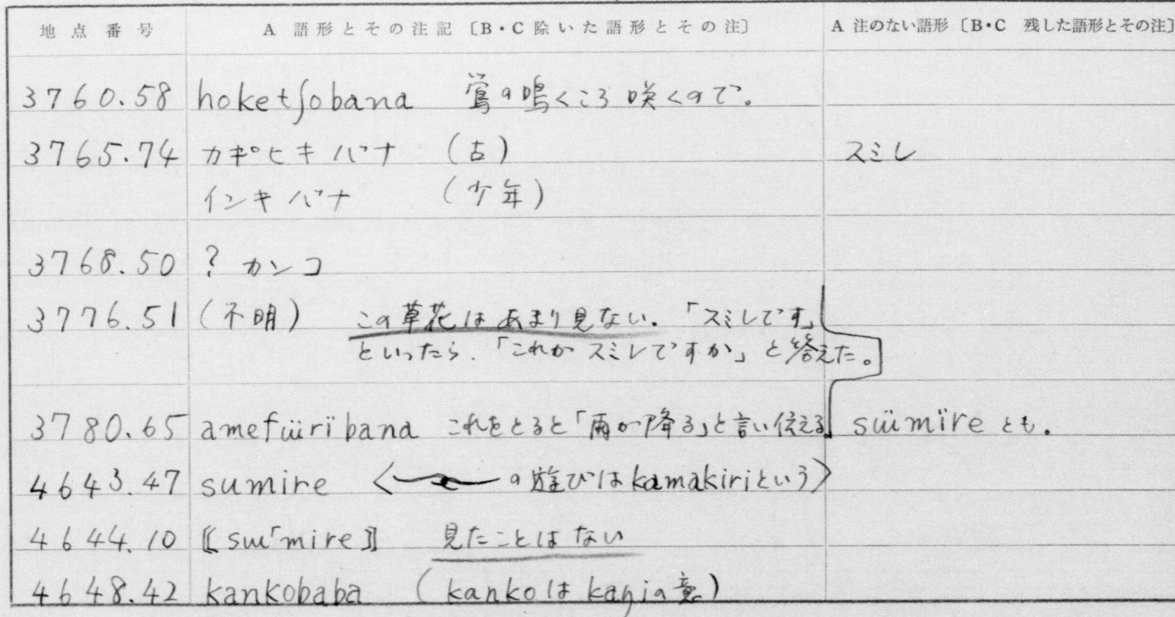 地点番号 A 語形とその注記〔B・C 除いた語形とその注〕 A 注のない語形〔B・C 残した語形とその注〕
3760.58 hoketʃobana 鶯の鳴くころ咲くので。
3765.74 カギヒキバナ (古) スミレ
インキバナ (少年)
3768.50 ? カンコ
3776.51 (不明) この草花はあまり見ない.「スミレです」
といったら.「これがスミレですか」と答えた。
3780.65 amefüïrïbana これをとると「雨が降る」と言い伝える süïmïre とも.
4643.47 sumire 〈 の遊びはkamakiriという〉
4644.10 〚sɯ「mire〛 見たことはない
4648.42 kankobaba (kankoはkaŋiの意)